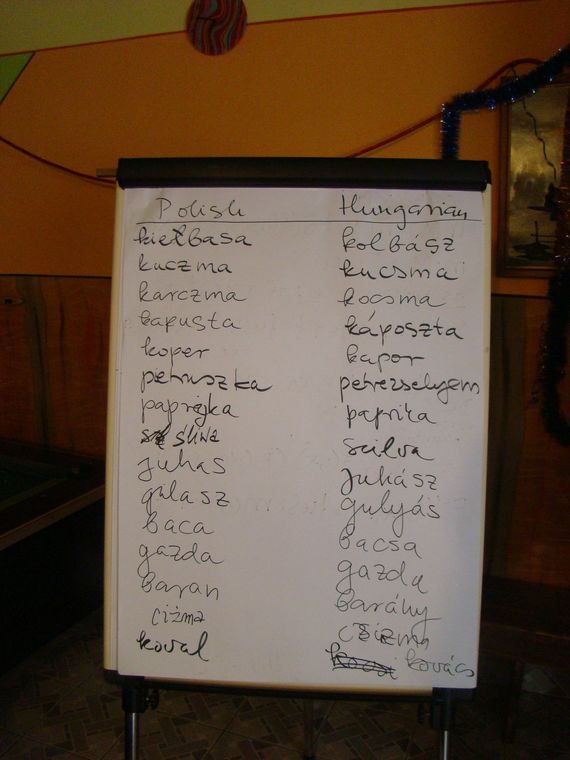 Polish Hungarian
kiełbasa kolbász
kuczma kucsma
karczma kocsma
kapusta káposzta
koper kapor
petruszka petrezselyem
papryka paprika
śliwa szilva
juhas juhász
gulasz gulyás
baca bacsa
gazda gazda
baran bárány
ciżma csizma
koval kovács